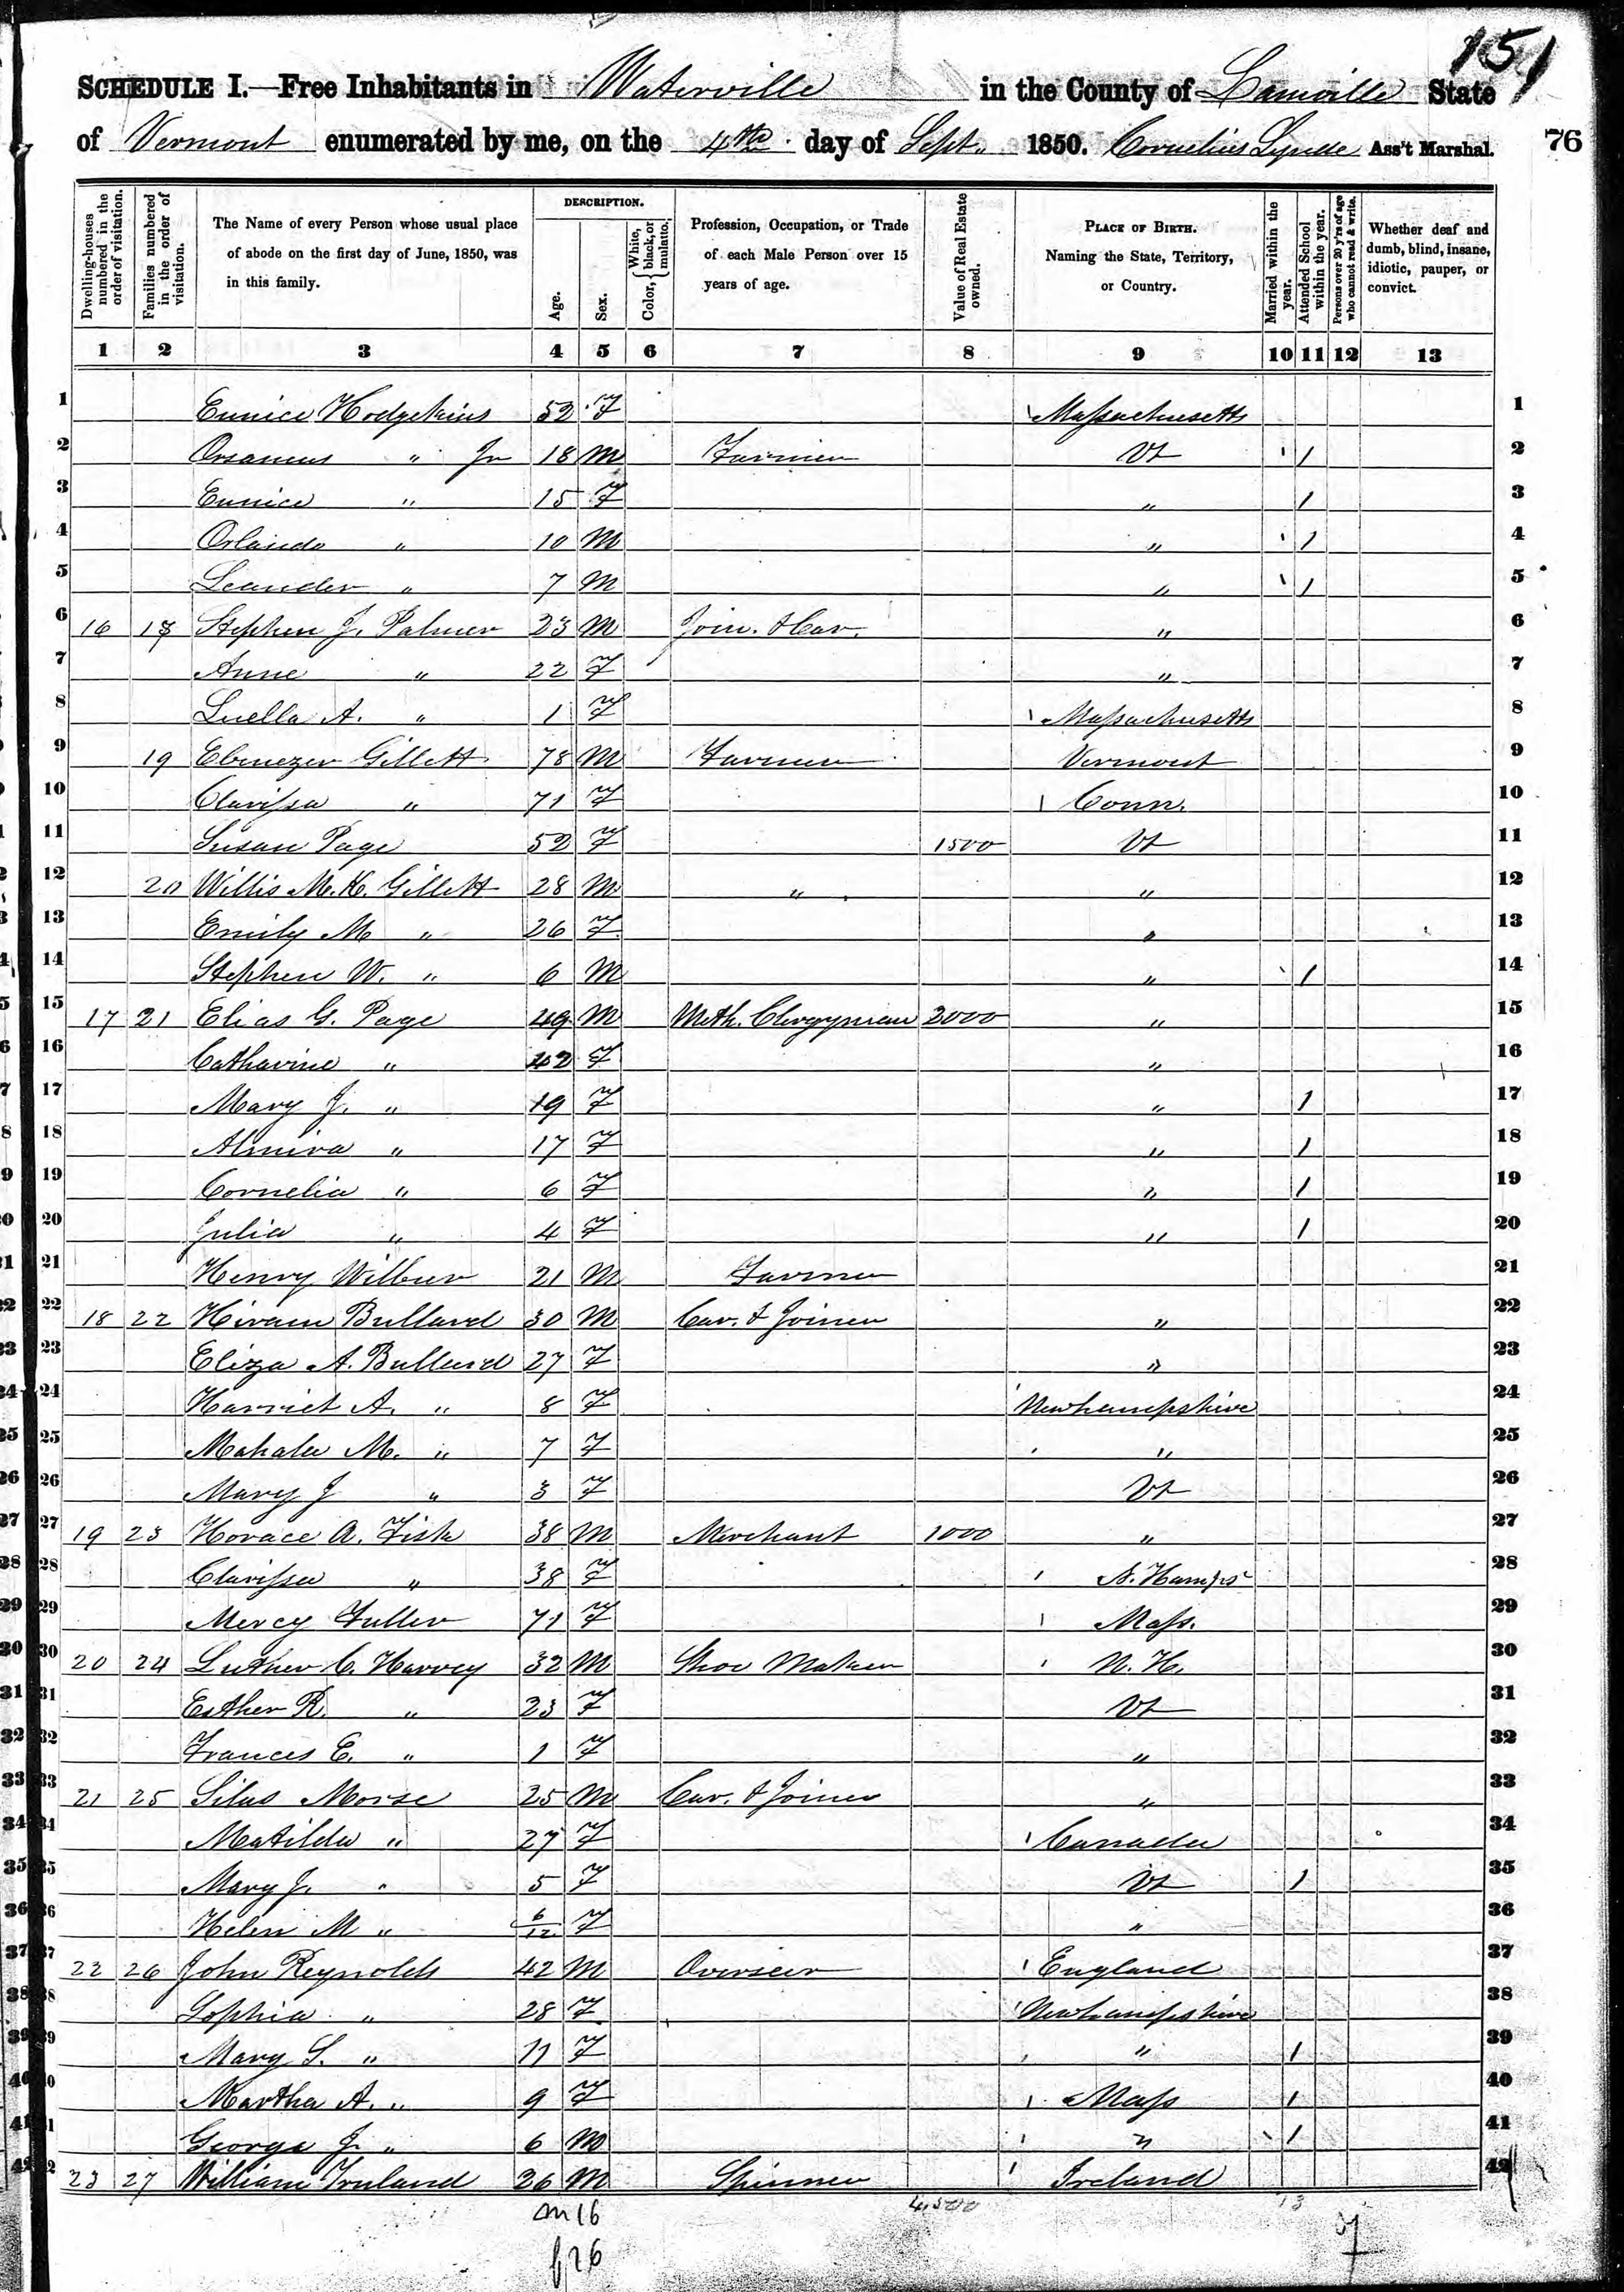 151
SCHEDULE I.—Free Inhabitants in Waterville in the County of Lamoille State
of Vermont enumerated by me, on the 4th day of Sept. 1850. Cornelius Lynde Ass't Marshal. 76
Dwelling-houses numbered in the order of visitation.
Families numbered in the order of visitation.
The Name of every Person whose usual place of abode on the first day of June, 1850, was in this family.
DESCRIPTION.
Age.
Sex.
Color, { White, black, or mulatto.
Profession, Occupation, or Trade of each Male Person over 15 years of age.
Value of Real Estate owned.
PLACE OF BIRTH. Naming the State, Territory, or Country.
Married within the year.
Attended School within the year.
Persons over 20 y'rs of age who cannot read & write.
Whether deaf and dumb, blind, insane, idiotic, pauper, or convict.
1 2 3 4 5 6 7 8 9 10 11 12 13
1 Eunice Hodgekins 52 F Massachusetts 1
2 Orsamus " Jr 18 M Farmer Vt 1 2
3 Eunice " 15 F " 1 3
4 Orlando " 10 M " 1 4
5 Leander " 7 M " 1 5
6 16 18 Stephen J. Palmer 23 M Join. & Car. " 6
7 Anne " 22 F " 7
8 Luella A. " 1 F Massachusetts 8
9 19 Ebenezer Gillett 78 M Farmer Vermont 9
10 Clarissa " 71 F Conn. 10
11 Susan Page 52 F 1500 Vt 11
12 20 Willis M. K. Gillett 28 M " " 12
13 Emily M " 26 F " 13
14 Stephen W. " 6 M " 1 14
15 17 21 Elias G. Page 49 M Meth. Clergyman 2000 " 15
16 Catharine " 42 F " 16
17 Mary J. " 19 F " 1 17
18 Almira " 17 F " 1 18
19 Cornelia " 6 F " 1 19
20 Julia " 4 F " 1 20
21 Henry Wilbur 21 M Farmer 21
22 18 22 Hiram Bullard 30 M Car. & Joiner " 22
23 Eliza A. Bullard 27 F " 23
24 Harriet A. " 8 F Newhampshire 24
25 Mahala M. " 7 F " 25
26 Mary J " 3 F Vt 26
27 19 23 Horace A. Fisk 38 M Merchant 1000 " 27
28 Clarissa " 38 F N. Hamps 28
29 Mercy Fuller 71 F Mass. 29
30 20 24 Luther C. Harvey 32 M Shoe Maker N. H. 30
31 Esther R. " 23 F Vt 31
32 Frances E. " 1 F " 32
33 21 25 Silas Morse 25 M Car. & Joiner " 33
34 Matilda " 27 F Canada 34
35 Mary J. " 5 F Vt 1 35
36 Helen M " 6/12 F " 36
37 22 26 John Reynolds 42 M Overseer England 37
38 Sophia " 28 F Newhampshire 38
39 Mary S. " 11 F " 1 39
40 Martha A. " 9 F Mass 1 40
41 George J. " 6 M " 1 41
42 23 27 William Truland 26 M Spinner Ireland 42
m 16 4,500 13
f 26